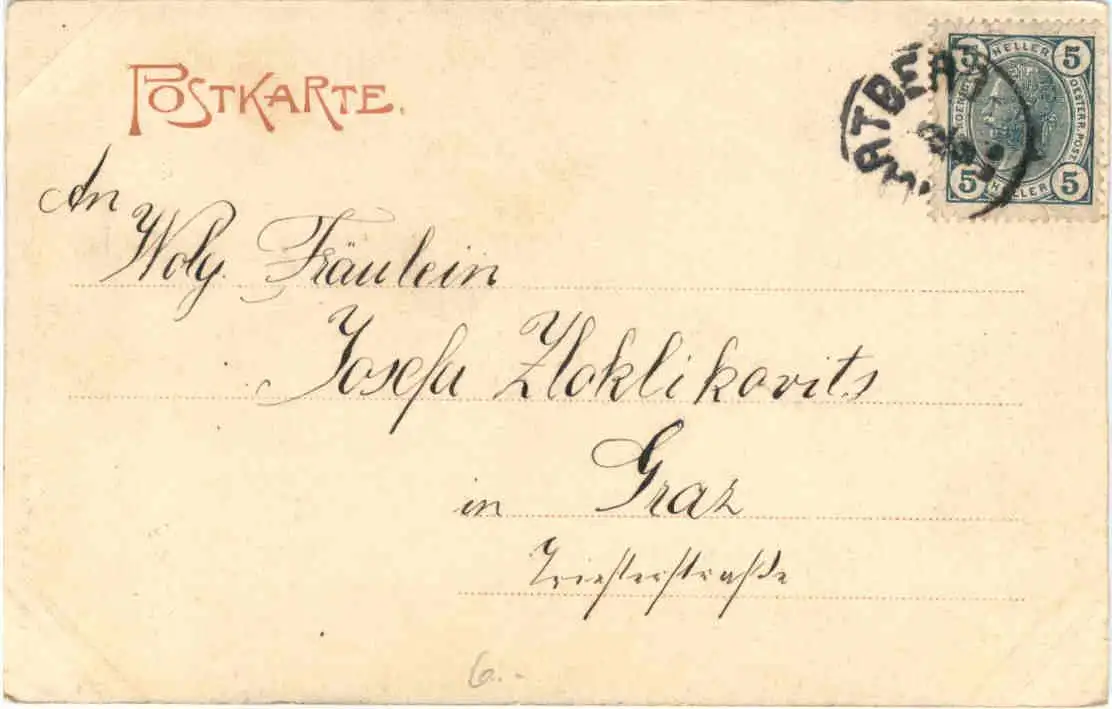 POSTKARTE.
HELLER
5 5
OESTERR. POST
5 5
HELLER
An
Wolg. Fräulein
Josefa Zloklikovits
in Graz
Triesterstraße
6.-